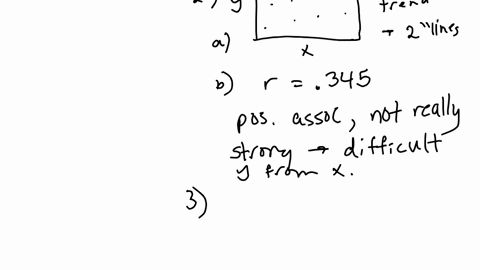 y trend
→ 2 "lines
a)
x
b) r = .345
pos. assoc, not really
strong → difficult
y from x.
3)